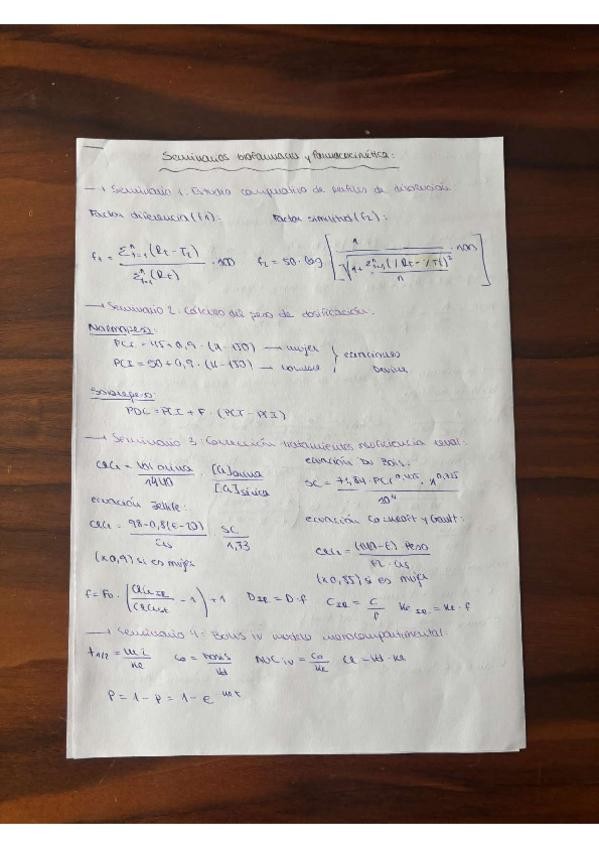 Seminarios biofarmacia y farmacocinética:
→ Seminario 1: Estudio comparativo de perfiles de disolución.
Factor diferencia (f1): Factor similitud (f2):
f1 = Σⁿt=1 (Rt - Tt) / Σⁿt=1 (Rt) · 100 f2 = 50 · log [ 1 / √(1 + Σⁿt=1 (%Rt - %Tt)² / n) · 100 ]
→ Seminario 2: Cálculo del peso de dosificación.
Normopeso:
PCI = 45 + 0,9 · (H - 150) → mujer } ecuaciones
PCI = 50 + 0,9 · (H - 150) → hombre } Devine
Sobrepeso:
PDC = PCI + F · (PCT - PCI)
→ Seminario 3: Corrección tratamientos insuficiencia renal:
ClCr = Vol orina / 1440 · [Cr]orina / [Cr]sérica
ecuación Du Bois:
SC = 71,84 · PCT^0,425 · H^0,725 / 10⁴
ecuación Jelliffe:
ClCr = 98 - 0,8(E - 20) / Crs · SC / 1,73
(x0,9) si es mujer
ecuación Cockroft y Gault:
ClCr = (140 - E) · Peso / 72 · Crs
(x0,85) si es mujer
f = F0 · (ClCr IR / ClCr - 1) + 1 DIR = D · f CIR = C / f Ke IR = Ke · f
→ Seminario 4: Bolus iv modelo monocompartimental
t1/2 = ln 2 / Ke C0 = Dosis / Vd AUC iv = C0 / Ke Cl = Vd · Ke
P = 1 - p = 1 - e^-Ke·t